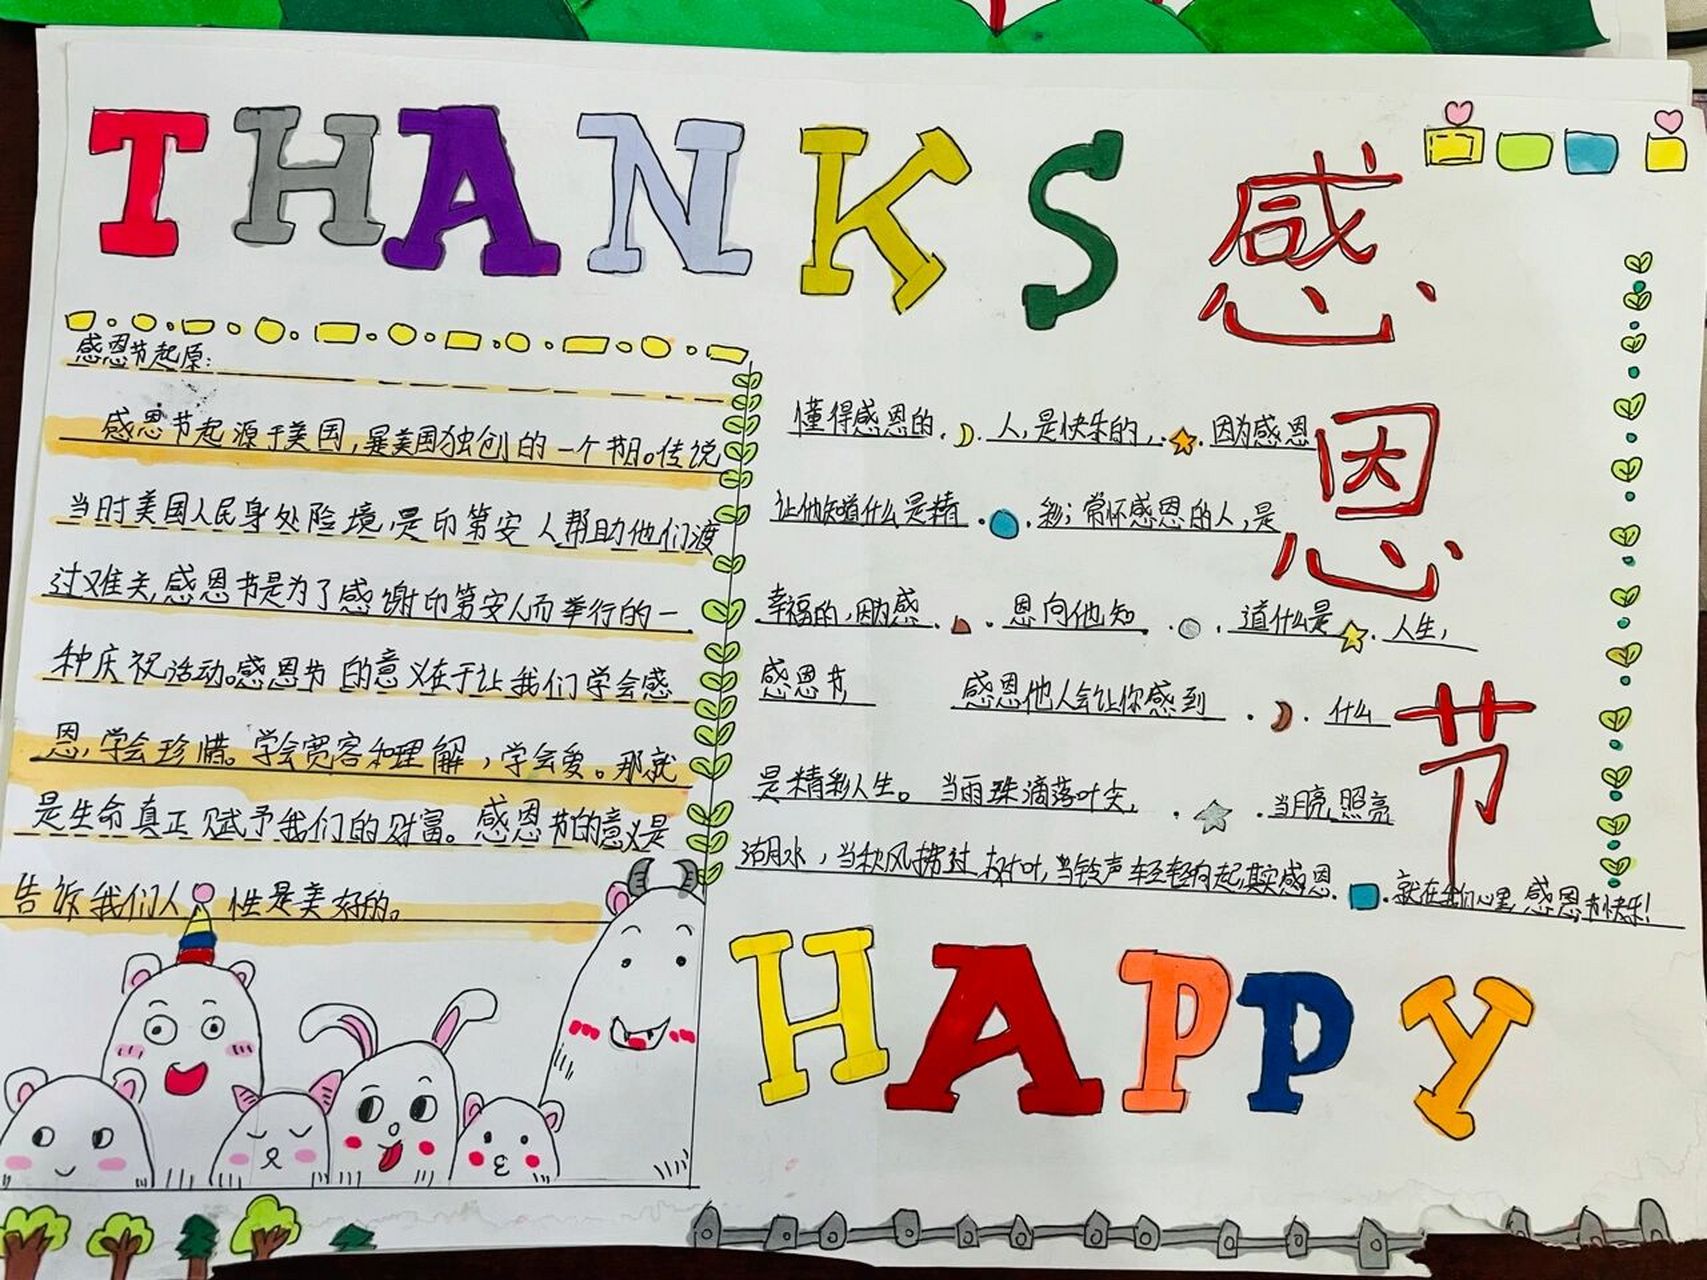 THANKS
感恩节
感恩节起原:
感恩节起源于美国,是美国独创的一个节日。传说
当时美国人民身处险境,是印第安人帮助他们渡
过难关,感恩节是为了感谢印第安人而举行的一
种庆祝活动。感恩节的意义在于让我们学会感
恩,学会珍惜。学会宽容和理解,学会爱。那就
是生命真正赋予我们的财富。感恩节的意义是
告诉我们人性是美好的。
懂得感恩的人,是快乐的,因为感恩
让他知道什么是精彩;常怀感恩的人,是
幸福的,因为感恩向他知道什么是人生,
感恩节 感恩他人会让你感到什么
是精彩人生。当雨珠滴落叶尖,当月亮照亮
湖水,当秋风拂过树叶,当铃声轻轻响起,其实感恩就在我们心里,感恩节快乐!
HAPPY